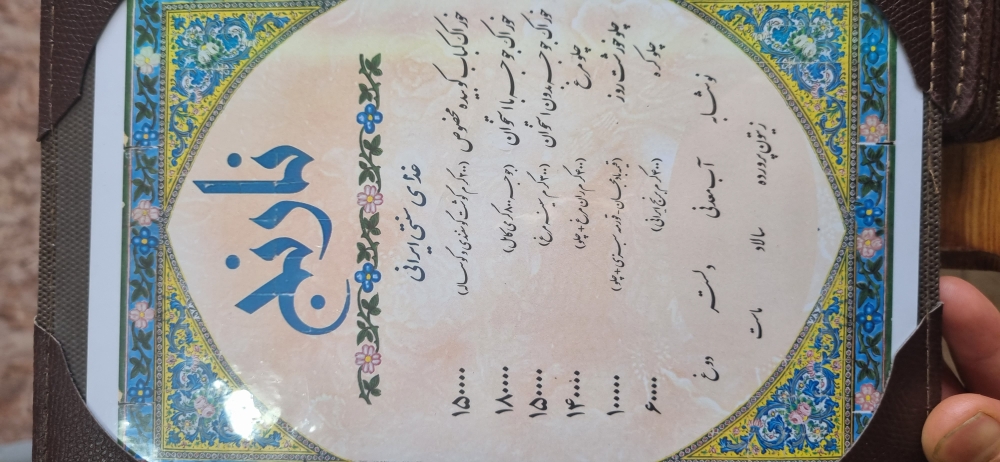 نارنج
غذای سنتی ایرانی
خوراک کباب کوبیده مخصوص (۳۰۰ گرم گوشت گوسفندی و گوساله) ۱۵۰۰۰۰
خوراک جوجه با استخوان (جوجه ۸۰۰ گرمی کامل) ۱۸۰۰۰۰
خوراک جوجه بدون استخوان (۳۰۰ گرم سینه مرغ) ۱۵۰۰۰۰
چلو مرغ (۴۰۰ گرم ران مرغ + چلو) ۱۴۰۰۰۰
چلو خورشت روز (قیمه بادمجان - قورمه سبزی + چلو) ۱۰۰۰۰۰
چلو کره (۴۰۰ گرم برنج ایرانی) ۶۰۰۰۰
نوشابه آب معدنی دلستر دوغ
زیتون پرورده سالاد ماست